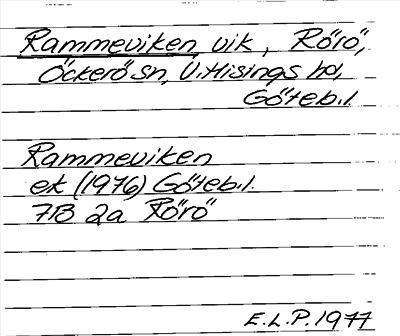 Rammeviken, vik, Rörö,
Öckerö sn, V. Hisings hd,
Göteb. l.
Rammeviken
ek (1976) Göteb. l.
7B 2a Rörö
E. L. P. 1977